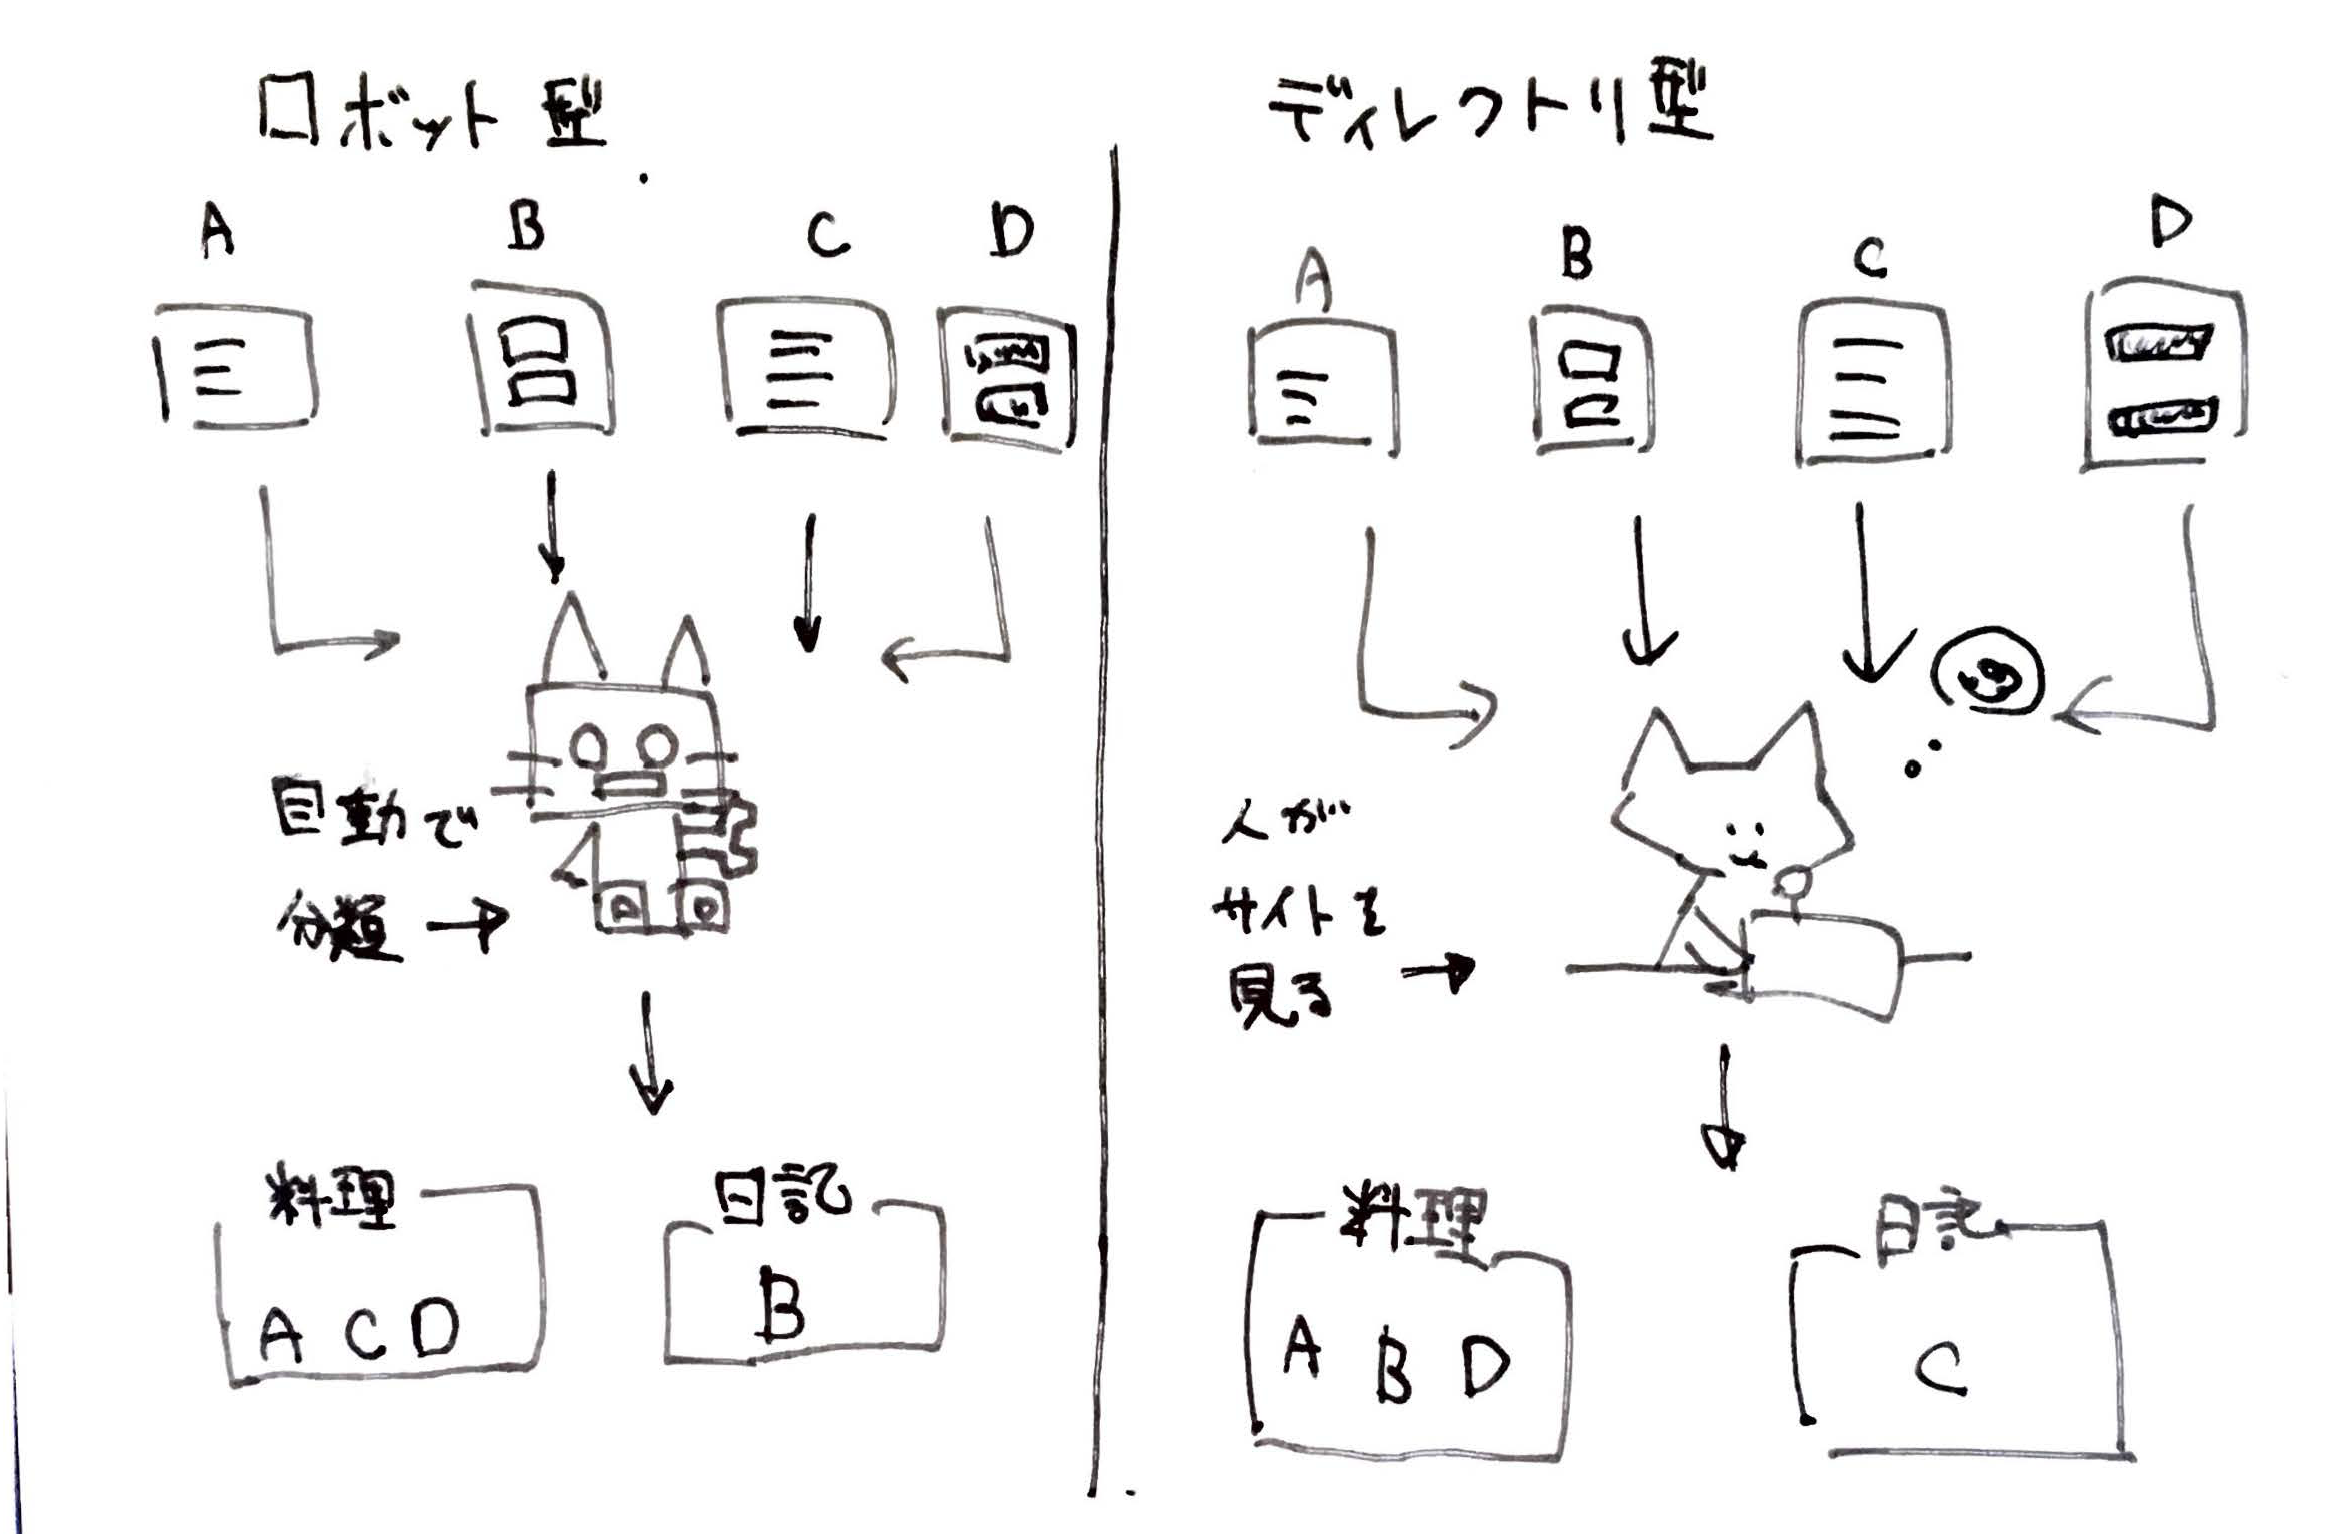 ロボット型
A
B
C
D
自動で
分類→
料理
A C D
日記
B
ディレクトリ型
A
B
C
D
人が
サイトを
見る→
料理
A B D
日記
C